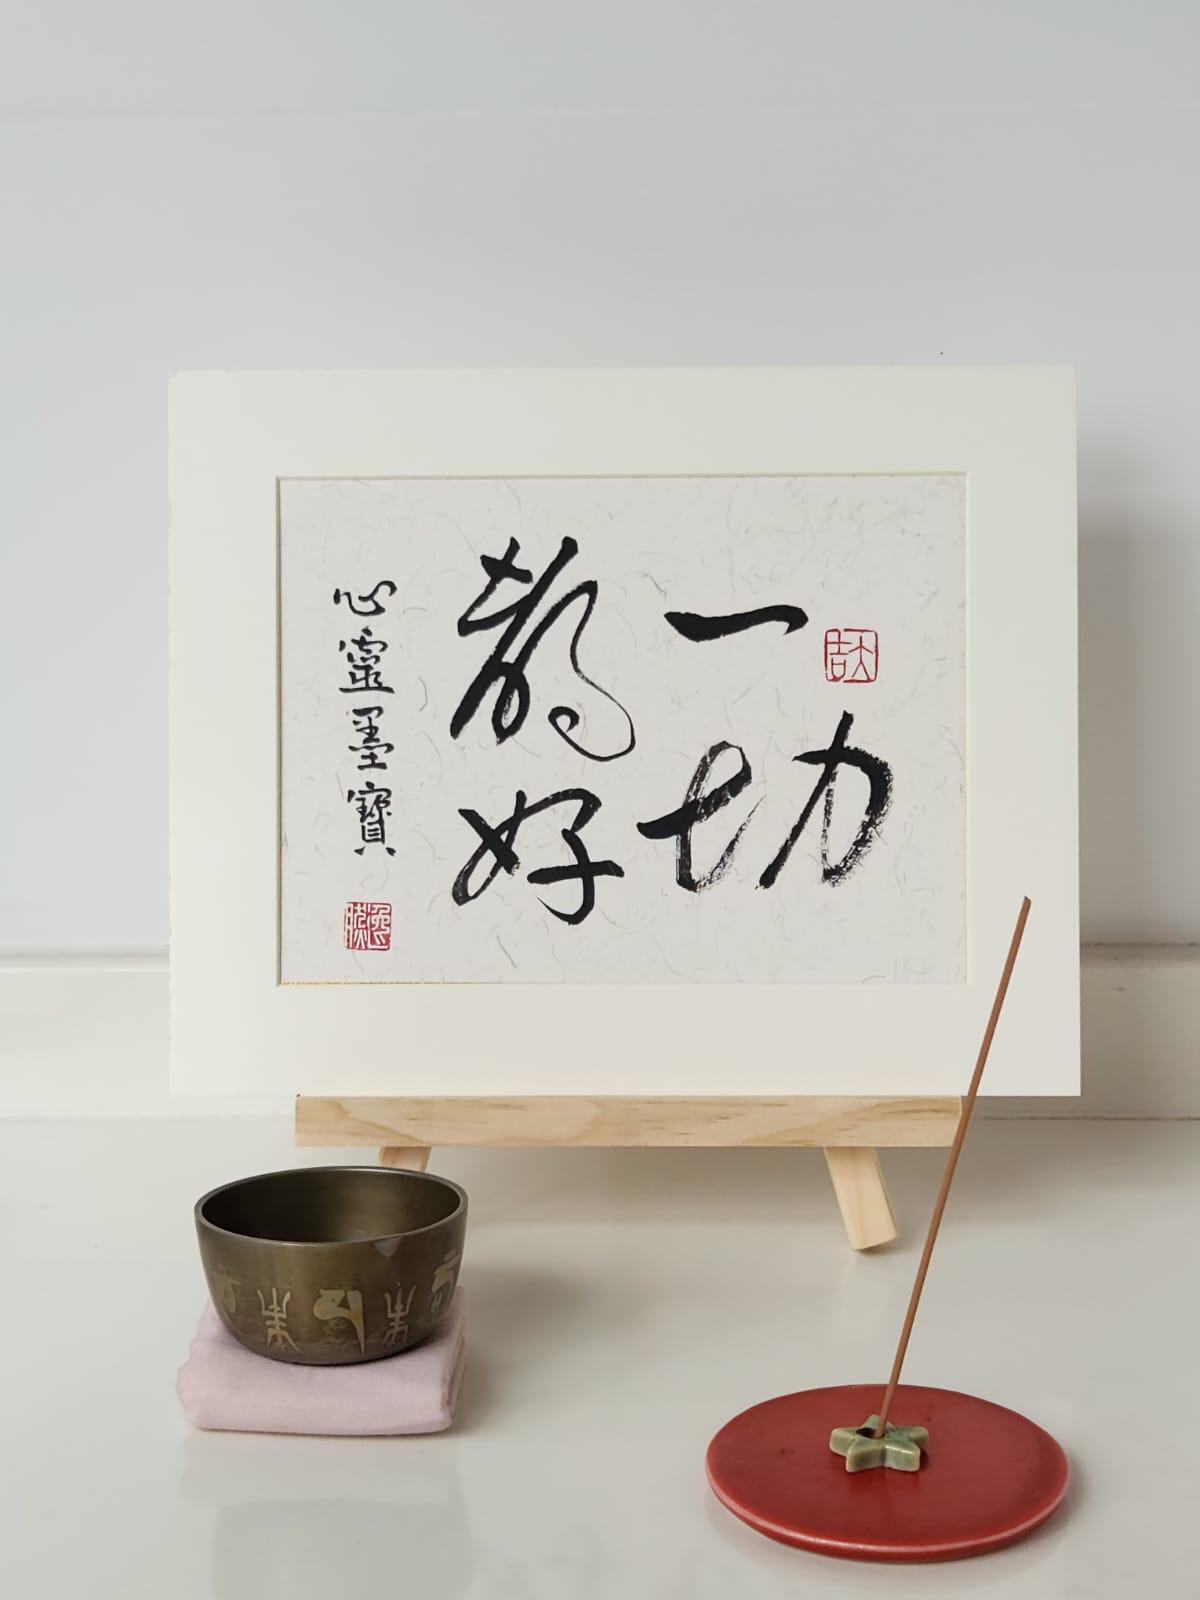 一切
都好
心靈墨寶
大吉